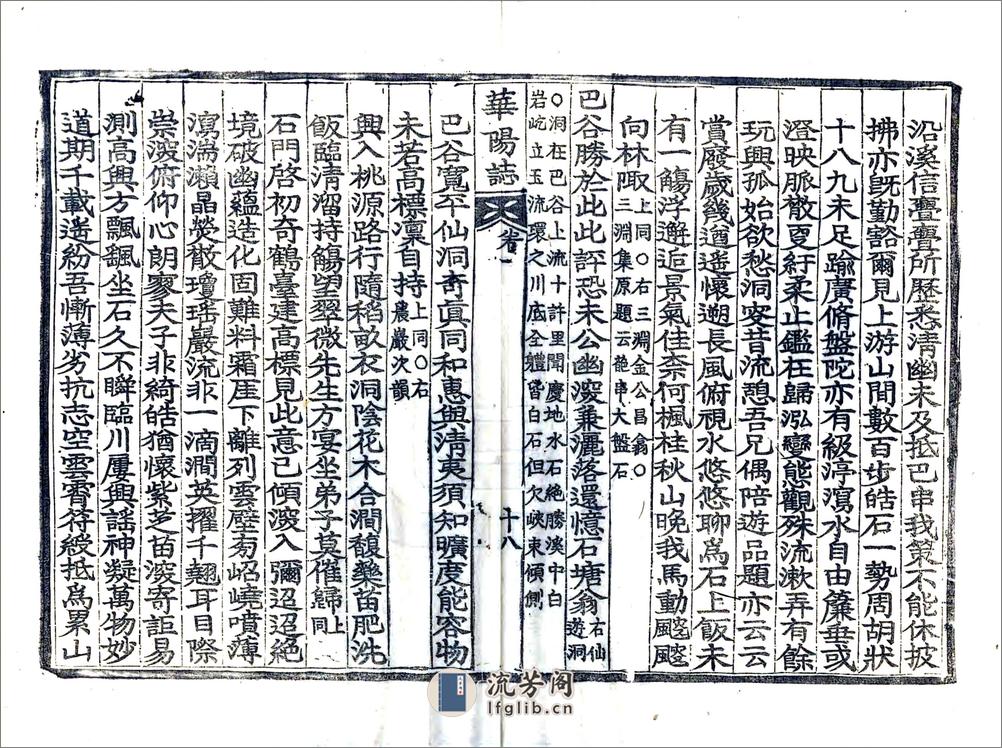 沿溪信亹亹所歷悉清幽未及抵巴串我策不能休披
拂亦旣勤豁爾見上游山間數百步皓石一勢周胡狀
十八九未足踰廣脩盤陀亦有級渟瀉水自由簾垂或
澄映脈散夏紆柔止鑑在歸泓變態觀殊流漱弄有餘
玩興孤始欲愁洞客昔流憩吾兄偶陪遊品題亦云云
賞廢歲幾遒遙懷遡長風俯視水悠悠聊爲石上飯未
有一觴浮邂逅景氣佳柰何楓桂秋山晚我馬動飂飂
向林陬上同○右三淵金公昌翕○
三淵集原題云葩串大盤石
巴谷勝於此此評恐未公幽深兼灑落還憶石塘翁右仙
遊洞
○洞在巴谷上流十許里聞慶地水石絶勝溪中白
岩屹立玉流環之川底全軆皆白石但欠峽束傾側
華陽誌 卷一 十八
巴谷寬平仙洞奇眞同和惠與淸夷須知曠度能容物
未若高標凜自持上同○右
農巖次韻
興入桃源路行隨稻畝衣洞陰花木合澗馥藥苗肥洗
飯臨清溜持觴望翠微先生方宴坐弟子莫催歸上
同
石門啓初奇鶴臺建高標見此意已傾深入彌迢迢絶
境破幽蘊造化固難料霜厓下離列雲壁旁岹嶢噴薄
瀉湍瀨晶熒散瓊瑤巖流非一滴澗英擢千翹耳目際
崇深俯仰心朗寥夫子非綺皓猶懷紫芝苗深寄詎易
測高興方飄颻坐石久不瞬臨川屢興謠神凝萬物妙
道期千載遙紛吾慚薄劣抗志空雲霄符綬抵爲累山
流芳阁
lfglib.cn